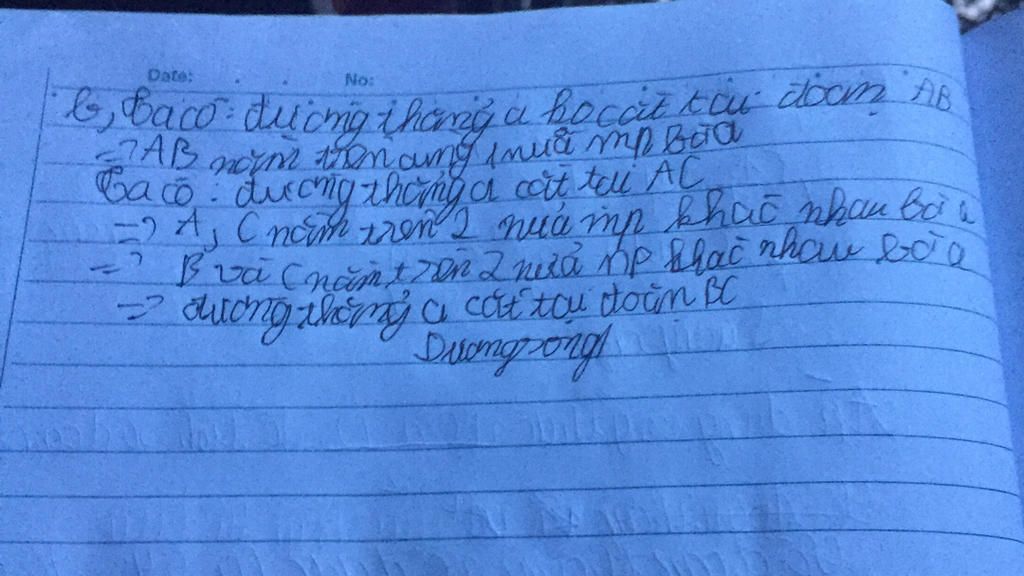 Date: . . No:
b, Ta có: đường thẳng a ko cắt tại đoạn AB
=> AB nằm trên cùng 1 nửa mp bờ a
Ta có: đường thẳng a cắt tại AC
=> A, C nằm trên 2 nửa mp khác nhau bờ a
=> B và C nằm trên 2 nửa mp khác nhau bờ a
=> đường thẳng a cắt tại đoạn BC